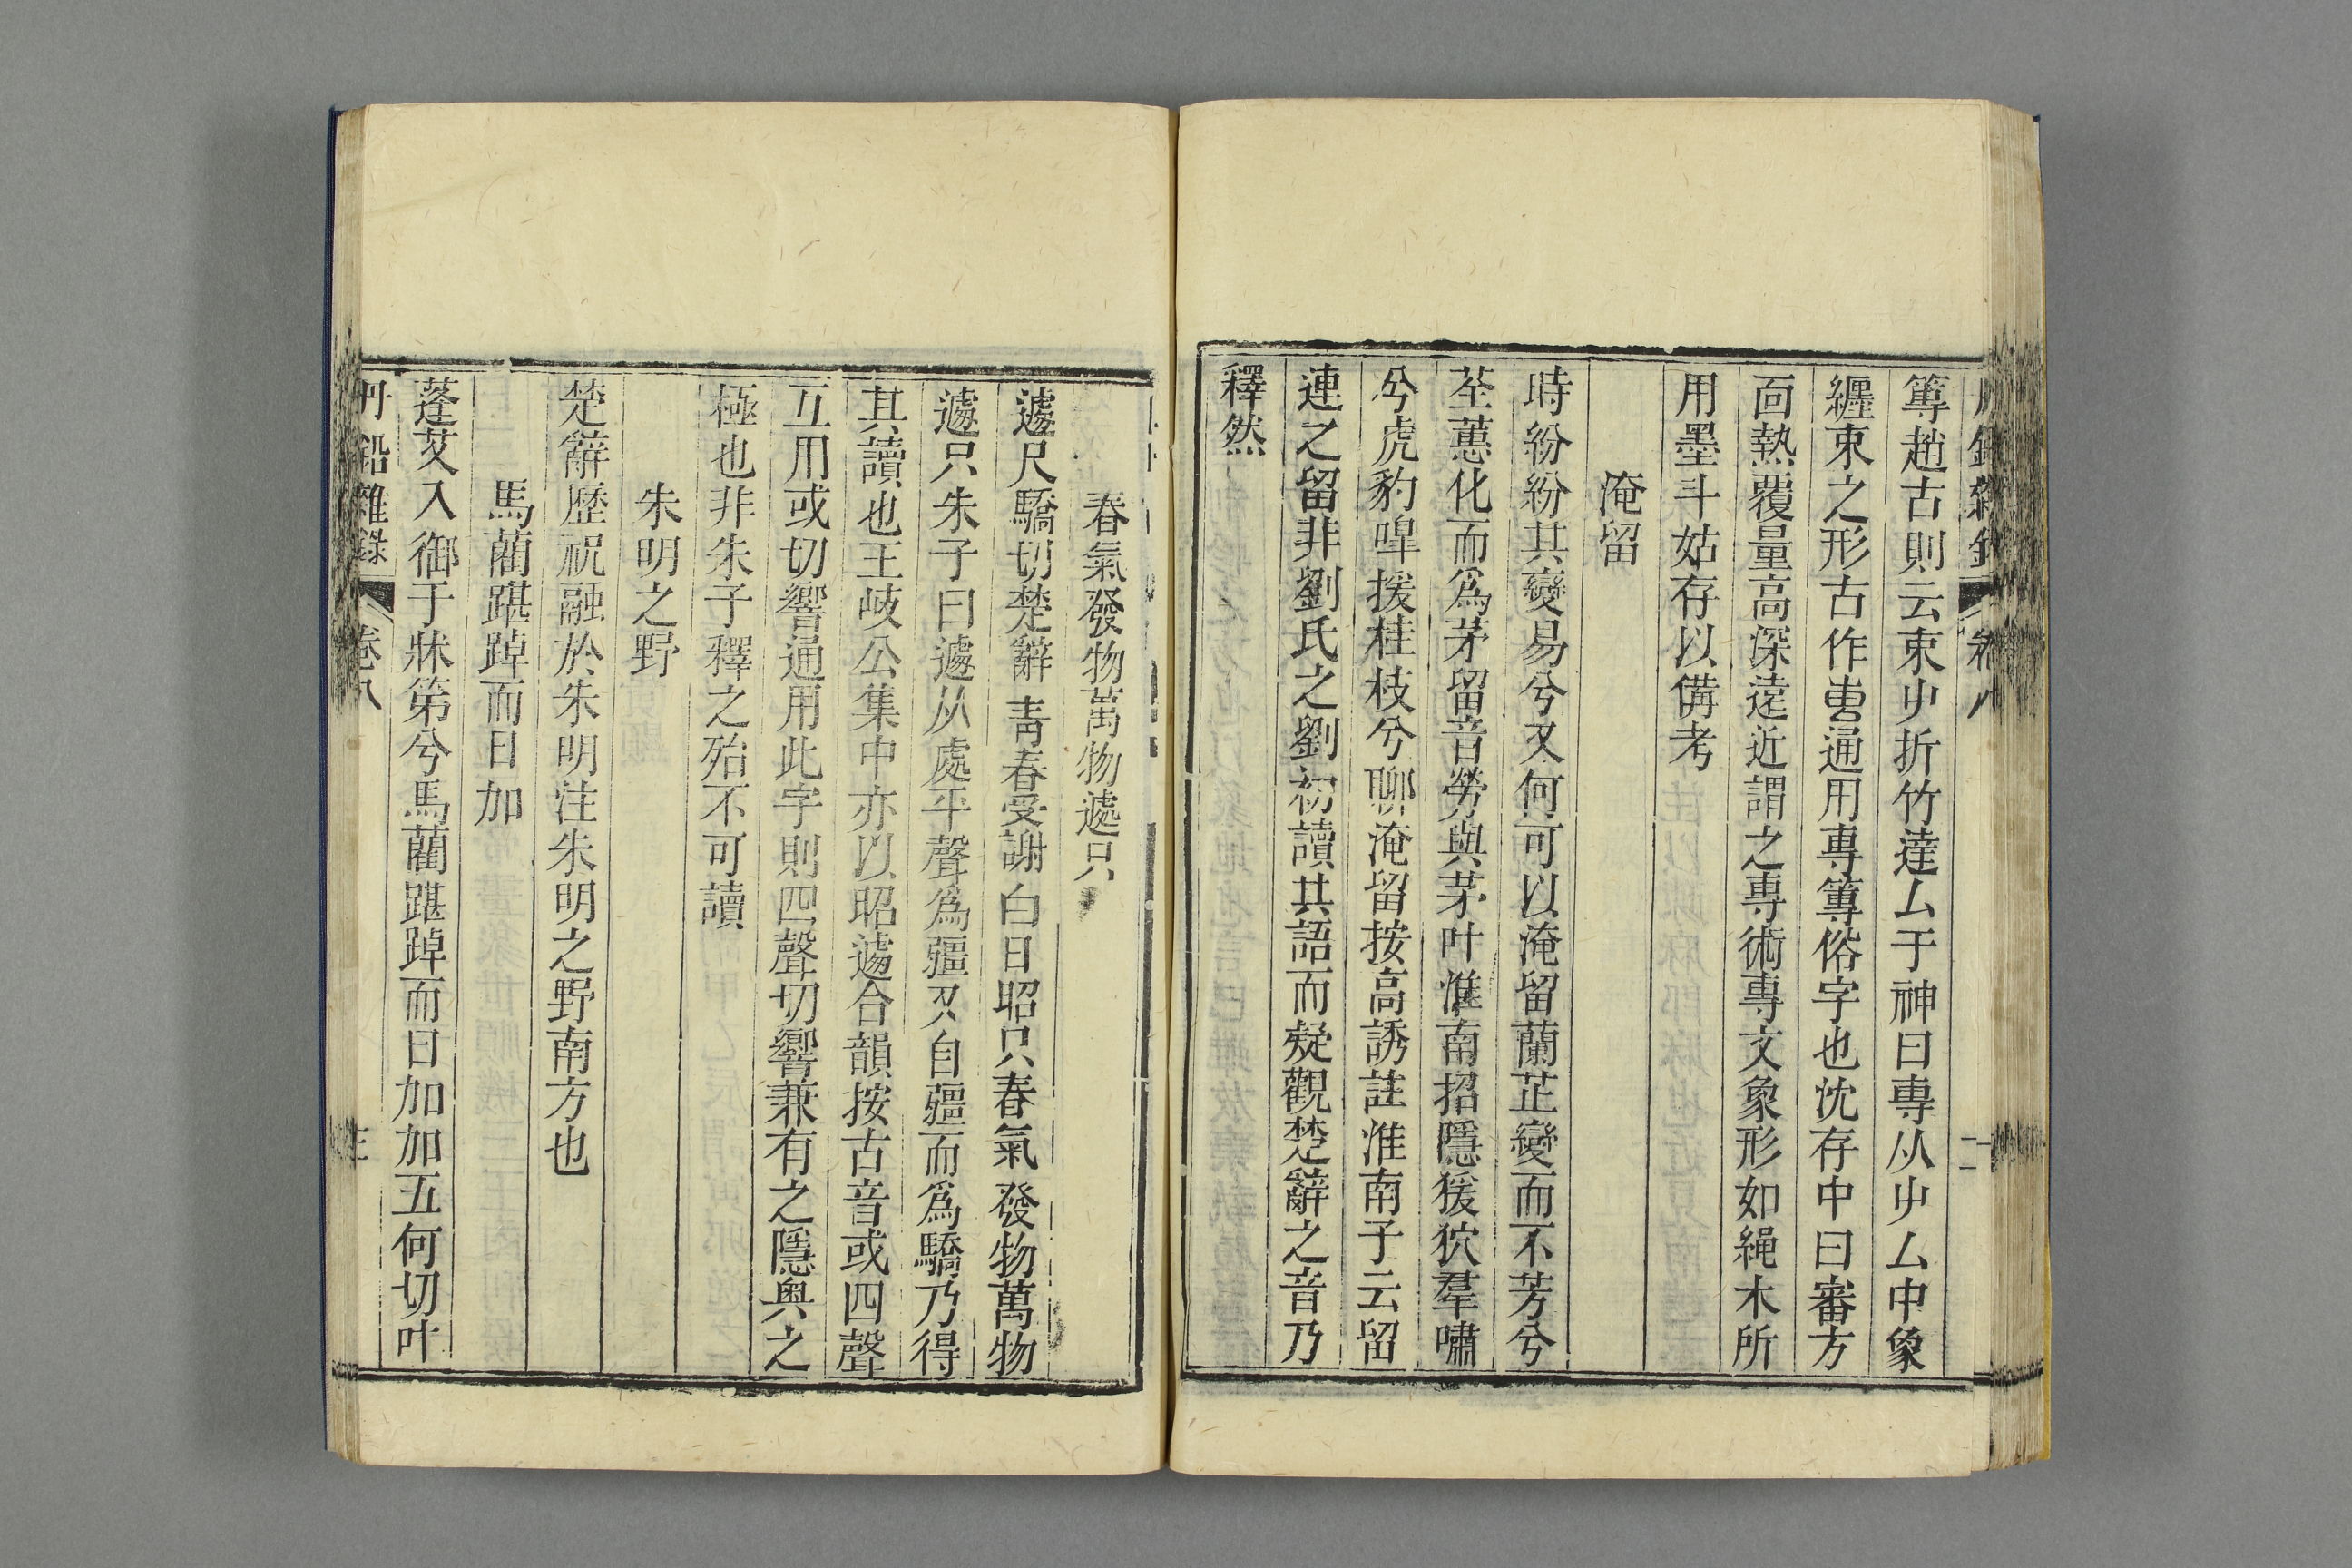 篿趙古則云東屮折竹達厶于神曰專从屮厶中象
纒束之形古作叀通用專篿俗字也沈存中曰審方
面熱覆量高深遠近謂之專術專文象形如繩木所
用墨斗姑存以備考
淹留
時紛紛其變易兮又何可以淹留蘭芷變而不芳兮
荃蕙化而爲茅留音勞與茅叶淮南招隱猨狖羣嘯
兮虎豹嘷援桂枝兮聊淹留按高誘註淮南子云留
連之留非劉氏之劉初讀其語而疑觀楚辭之音乃
釋然
春氣發物萬物遽只
遽尺驕切楚辭青春受謝白日昭只春氣發物萬物
遽只朱子曰遽从處平聲爲彊又自彊而爲驕乃得
其讀也王岐公集中亦以昭遽合韻按古音或四聲
互用或切響通用此字則四聲切響兼有之隱輿之
極也非朱子釋之殆不可讀
朱明之野
楚辭歷祝融於朱明注朱明之野南方也
馬藺踸踔而日加
蓬艾入御于牀第兮馬藺踸踔而日加加五何切叶
丹鉛雜錄 卷八